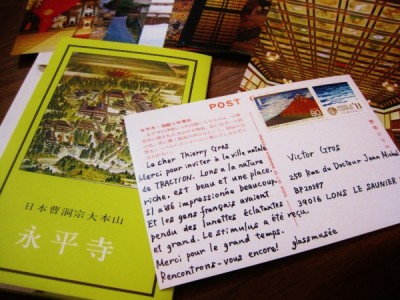 日本曹洞宗大本山
永平寺
POST
Le cher Thierry Gros
Merci pour inviter à la ville natale
de TRACTION. Lons a la nature
riche, est beau et une place.
Il a été impressionée beaucoup.
Et les gens français avaient
pendu des lunettes éclatantes
et grand. Le stimulus a été reçu.
Merci pour le grand temps.
Rencontrons-vous encore! glassmusée
80
Victor Gros
250 Rue du Docteur Jean Michel
39016 LONS LE SAUNIER